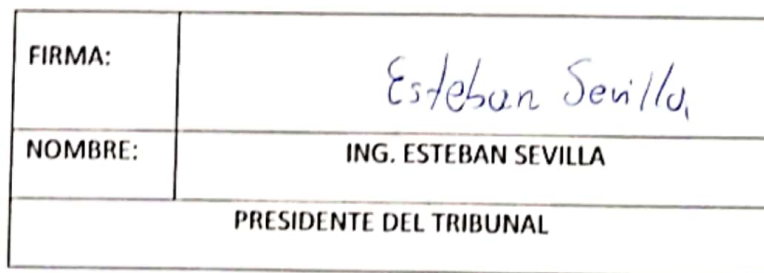 FIRMA:
Esteban Sevilla
NOMBRE:
ING. ESTEBAN SEVILLA
PRESIDENTE DEL TRIBUNAL